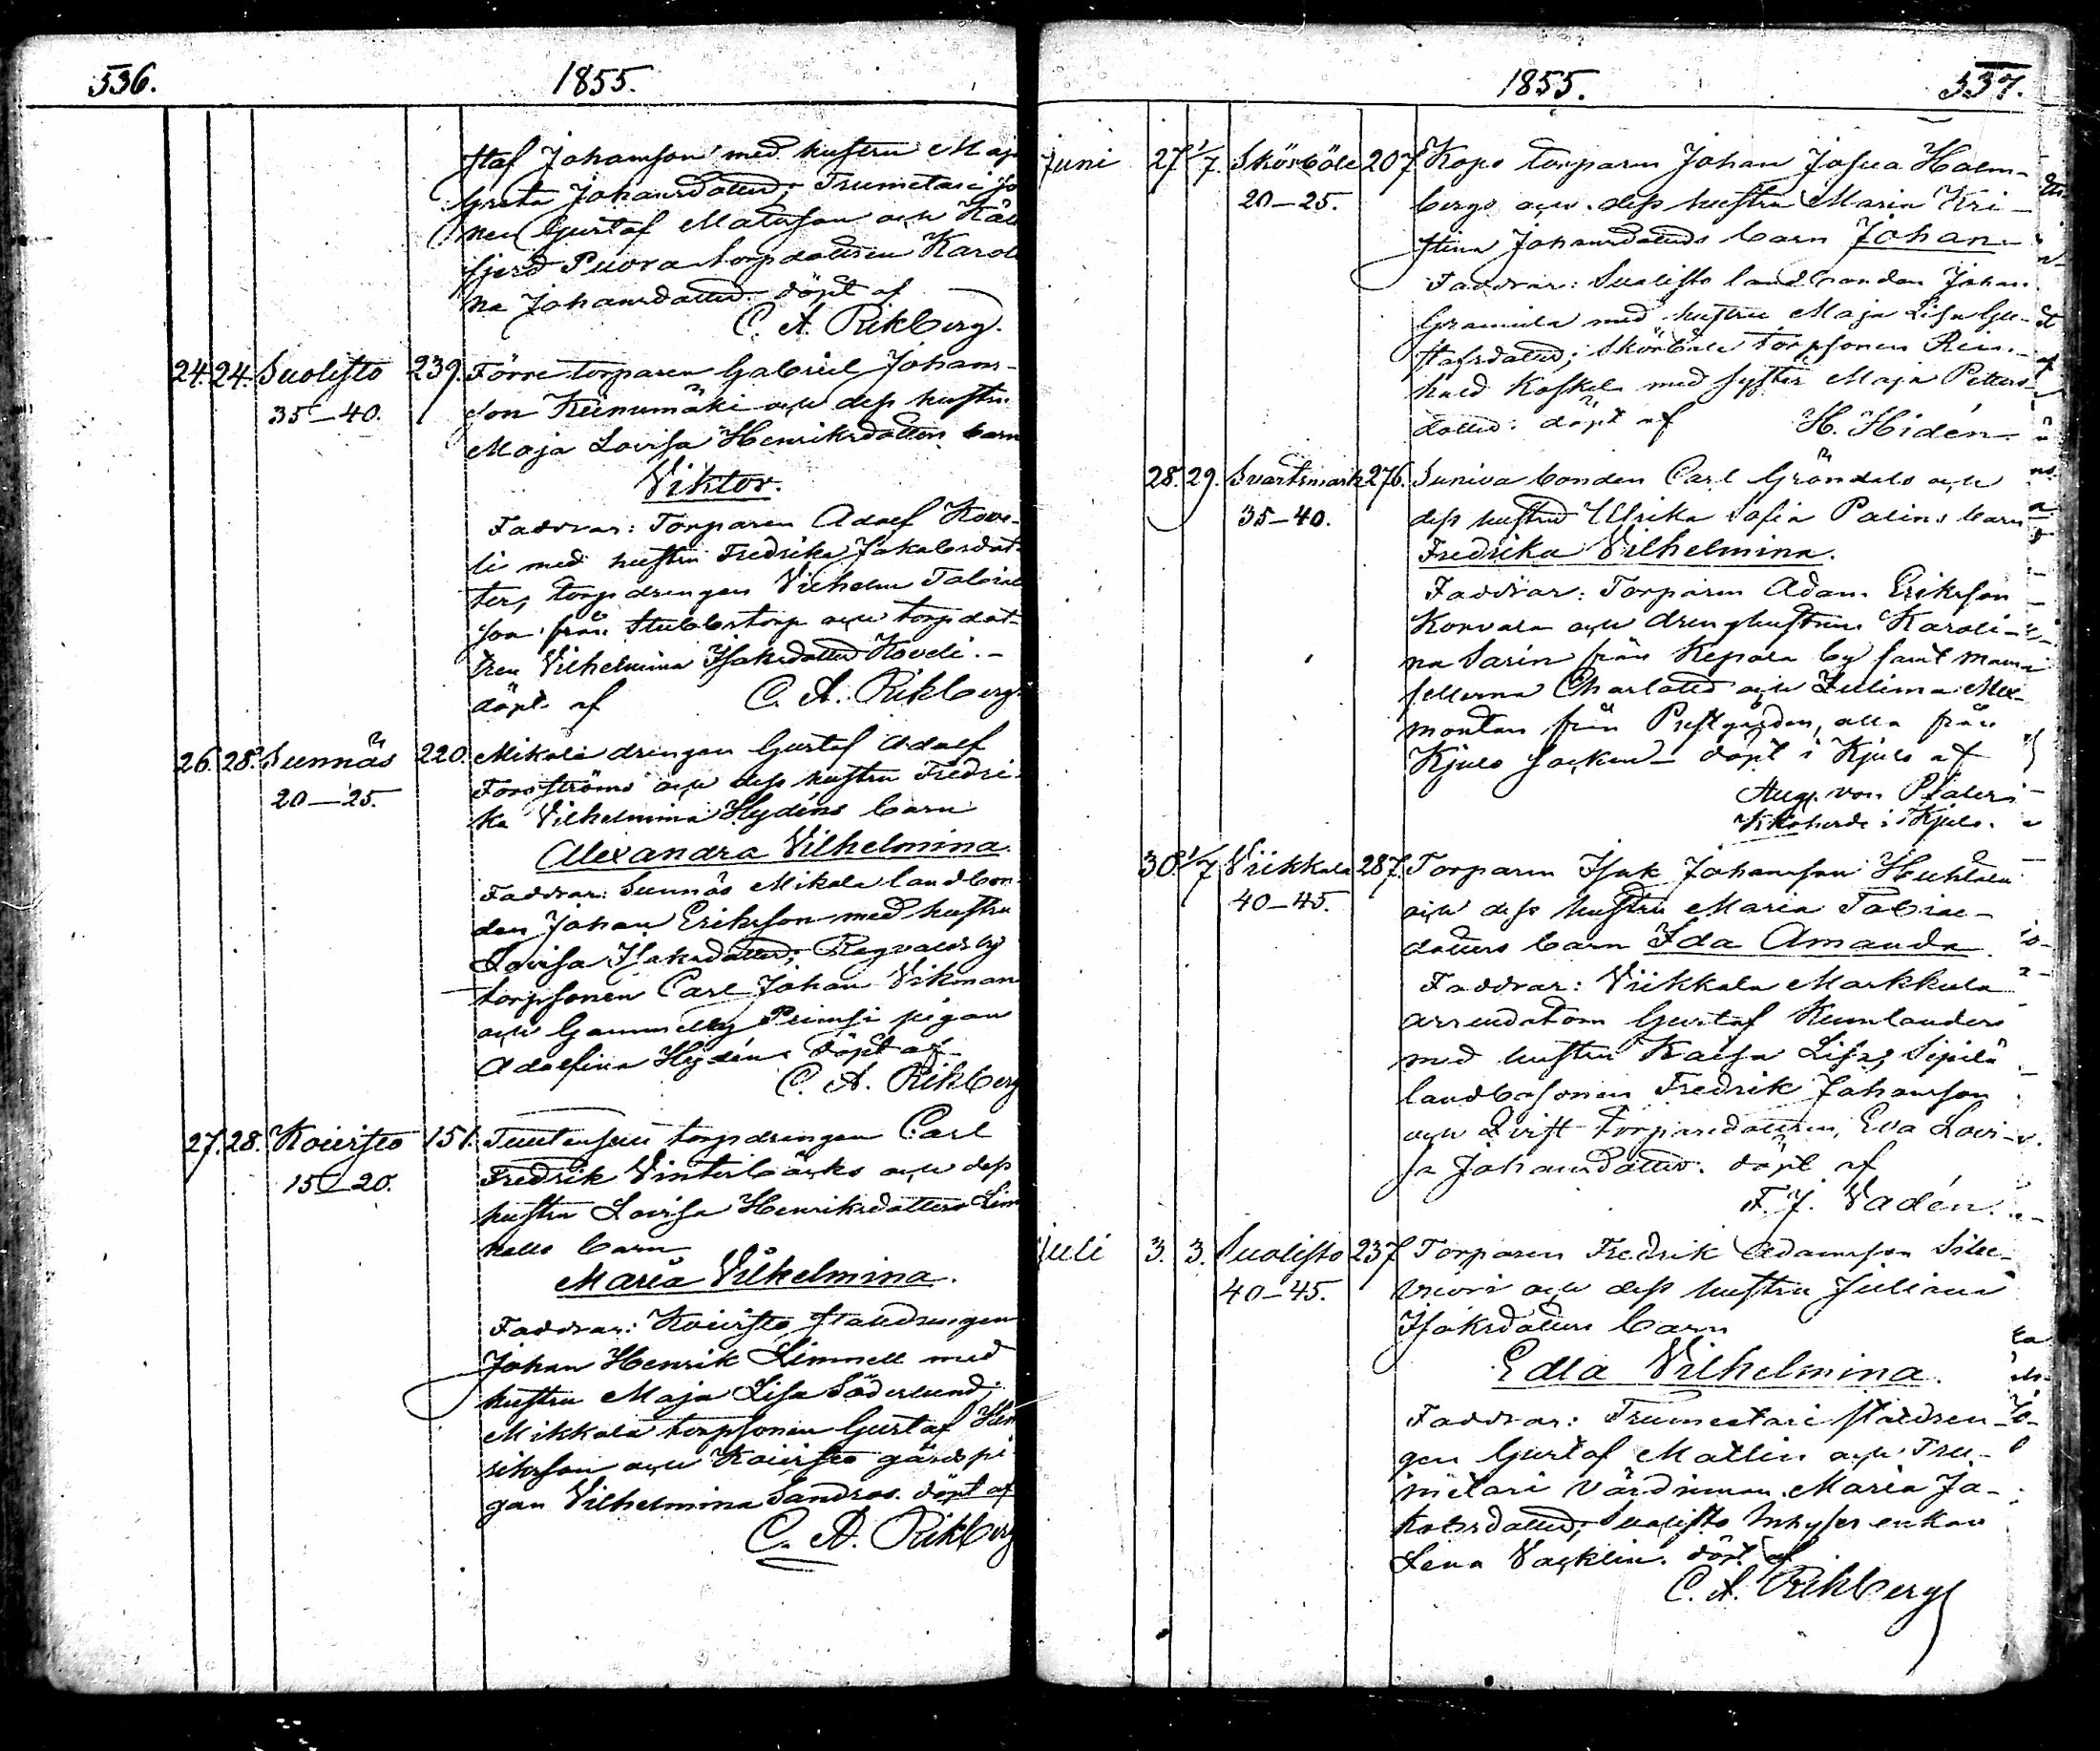 536.
1855.
staf Johansson med hustru Maja
Greta Johansdotter; Trumetari
Gustaf Matsson och
fjerd Puora torpdottren Karoli
na Johansdotter. döpt af
C. A. Rikberg.
24. 24. Suolisto 239. Förre torparen Gabriel Johans-
35–40. son Kiinumäki och dess hustru
Maja Lovisa Henriksdotters barn
Viktor.
Faddrar: Torparen Adolf Kove-
li med hustru Fredrika Jakobsdot-
ter, torpdrengen Vilhelm Tobias
son från Stubbstorp och torpdot-
tren Vilhelmina Isaksdotter Koveli.–
döpt af C. A. Rikberg
26. 28. Sunnäs 220. Mikola drengen Gustaf Adolf
20–25. Forsströms och dess hustru Fredri-
ka Vilhelmina Hydéns barn
Alexandra Vilhelmina.
Faddrar: Sunnäs Mikola landbon-
den Johan Eriksson med hustru
Lovisa Isaksdotter; Ragvaldsby
torpsonen Carl Johan Vikman
och Gammelby Prinsi pigan
Adolfina Hydén. döpt af
C. A. Rikberg
27. 28. Koivisto 151. torpdrengen Carl
15–20. Fredrik Vinterbäcks och dess
hustru Lovisa Henriksdotters Lim
nells barn
Maria Vilhelmina.
Faddrar: Koivisto stalldrengen
Johan Henrik Limnell med
hustru Maja Lisa Söderlund;
Mikkola torpsonen Gustaf Hen
riksson och Koivisto gårdspi
gan Vilhelmina Sandroos. döpt af
C. A. Rikberg
1855.
537.
Juni 27 1/7. Skörböle 207 Kops torparen Johan Josua Holm-
20–25. bergs och dess hustru Maria Kri-
stina Johansdotters barn Johan.
Faddrar: Suolisto landbonden Johan
Gramula med hustru Maja Lisa Gu-
stafsdotter; Skörböle torpsonen Rein-
hold Koskel med syster Maja Petters-
dotter. döpt af H. Hidén.
28. 29. Svartsmark 276. Suniva bonden Carl Gröndals och
35–40. dess hustru Ulrika Sofia Palins barn
Fredrika Vilhelmina.
Faddrar: Torparen Adam Eriksson
Korvala och drenghustrun Karoli-
na Sarin från Kepola by samt mam
sellerna Charlotte och Zelima Mex-
montan från Prestgården, alla från
Kjulo socken – döpt i Kjulo af
Aug. von Pfaler
Kkoherde i Kjulo.
30. 1/7 Viikkala 287. Torparen Isak Johansson Huhtala
40–45. och dess hustru Maria Tobias-
dotters barn Ida Amanda
Faddrar: Viikkala Markkula
arrendatorn Gustaf Kumlander
med hustru Kaisa Lisa; Sipilä
landbosonen Fredrik Johansson
och Qvist torparedottren, Eva Lovi-
sa Johansdotter. döpt af
F. J. Vadén.
Juli 3. 3. Suolisto 237 Torparen Fredrik Adamsson Silu-
40–45. vuori och dess hustru Juliana
Isaksdotters barn
Edla Vilhelmina.
Faddrar: Trumetari stalldren-
gen Gustaf Mallin och Tru-
metari värdinnan Maria Ja-
kobsdotter; Suolisto inhyses enkan
Lena Vacklin. döpt af
C. A. Rikberg